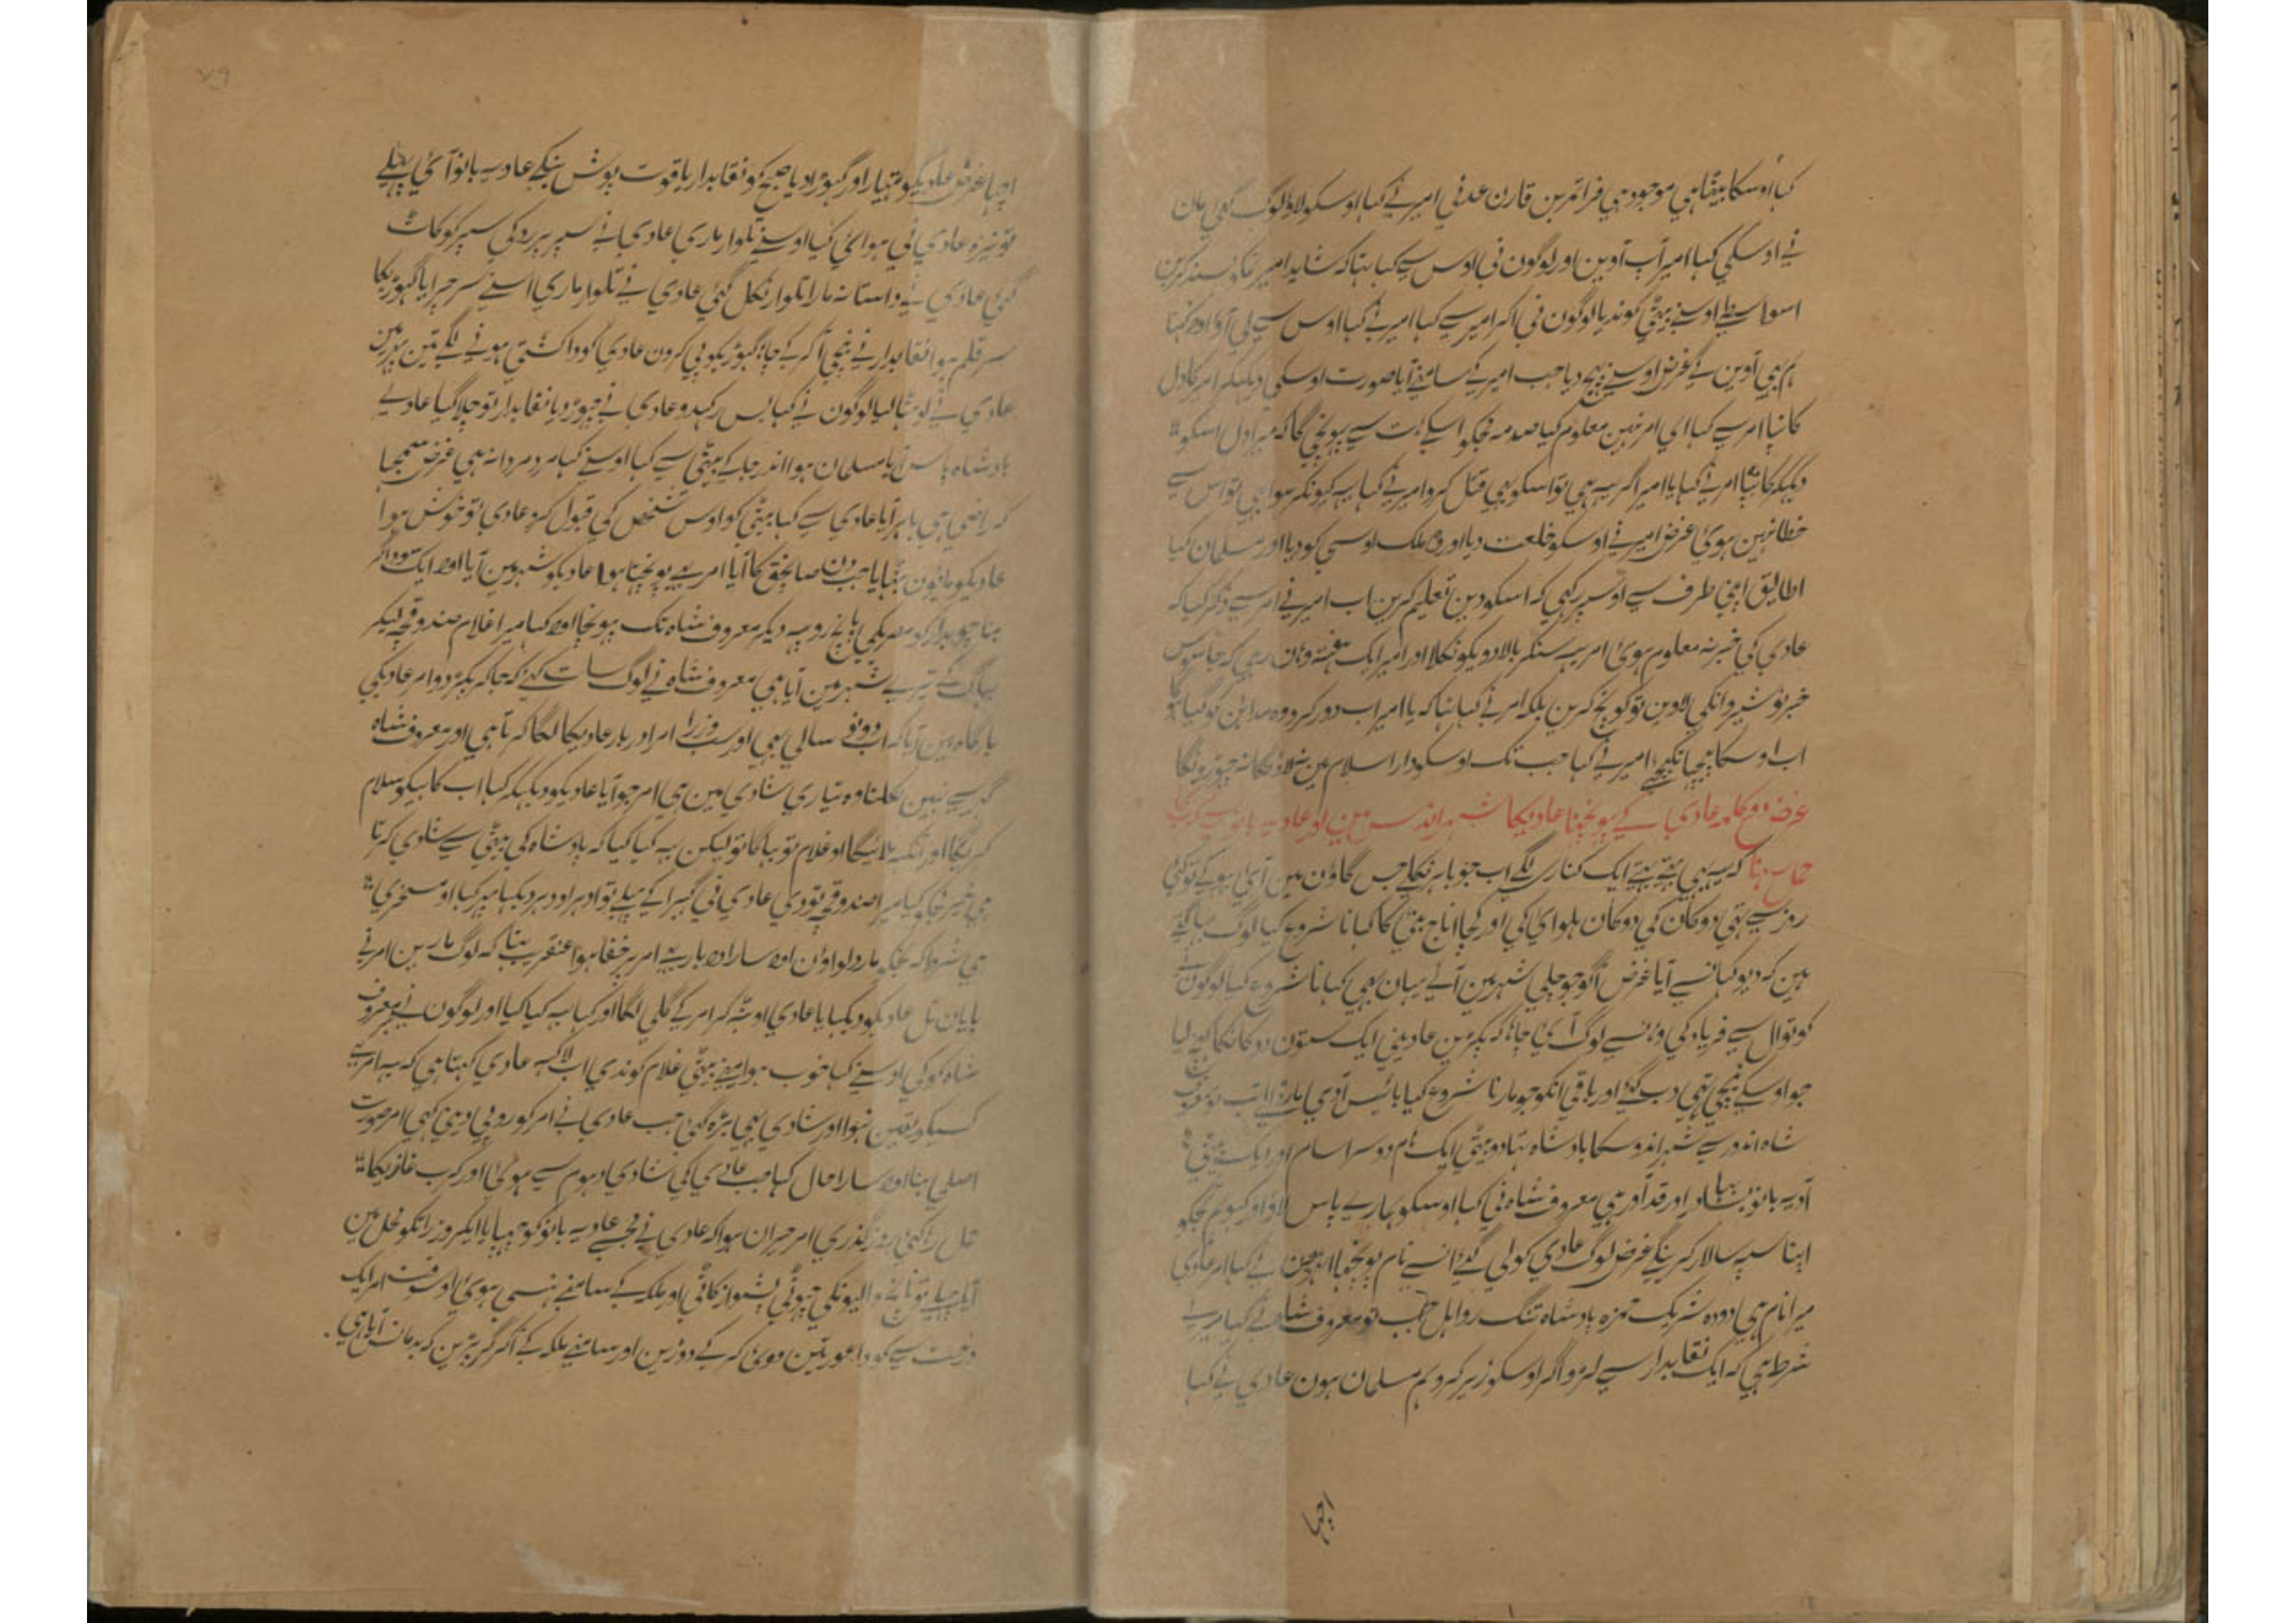 کہا اوسکا بیٹا ہی موجود ہی فرامرز بن قارن عدنی امیر نے کہا اوسکو لاؤ لوگ گئی مان
نے اوسکی کہا امیر آپ آوین اور لوگون نی اوس سے کہا تہا کہ شاید امیر تمکو پسند کرین
اسواسطے اوسنے بیٹی کو ندیا لوگون نی آکر امیر سے کہا امیر نے کہا اوس سے لی آؤ اور کہنا
ہم بہی آوین گے غرض اوسنے بہیج دیا جب امیر کے سامنے آیا صورت اوسکی دیکہکر امیر کا دل
کانپا امر سے کہا ای امر نہین معلوم کیا صدمہ مجکو اسکے ہات سے پہونچی گا کہ میرا دل اسکو
دیکہکر کانپتا امر نے کہا یا امیر اگر یہ ہی تو اسکو بہی قتل کرو امیر نے کہا یہ کیونکر ہو ابہی تو اس سے
خطا نہین ہوئی غرض امیر نے اوسکو خلعت دیا اور وہ ملک اوسی کو دیا اور مسلمان کیا
اطالیق اپنی طرف سے اوسپر رکہی کہ اسکو دین تعلیم کرین اب امیر نے امر سے ذکر کیا کہ
عادی کی خبر نہ معلوم ہوئی امر یہ سنکر بالادوی کو نکلا اور امیر ایک ہفتہ وہان رہی کہ جاسوس
خبر نوشیروانکی لاوین تو کوچ کرین بلکہ امر نے کہا تہا کہ یا امیر اب دور کرو وہ مداین کو گیا
اب اوسکا پیچہا نکیجئے امیر نے کہا جب تک اوسکو دار اسلام مین نہ لاؤنگا نہ چہوڑونگا
غرض دو کلمہ عادی کے پہونچنا عادیکا شہر اندس مین اور عادیہ بانو سے کرب کا
حاصل ہونا کہ یہ بہی بہتے بہتے ایک کناری لگے اب جو باہر نکلے جس گاؤن مین آئی بہوکے تو کئی
روز سے تہی دوکان کی دوکان حلوائی کی اور کچا اناج بنئی کا کہانا شروع کیا لوگ بہاگے
ہین کہ دیو کہانسے آیا غرض آگو جو چلی شہر مین آئے یہان بہی کہانا شروع کیا لوگون نے
کوتوال سے فریاد کی وہانسے لوگ آئی چاہا کہ پکڑین عادینی ایک ستون دوکانکا لیا
جو اوسکے نیچی تہی دب گئی اور باقی انکو جو مارنا شروع کیا بائیس آدمی مارے اب تو معروف
شاہ اندو سے شہر اندوسکا بادشاہ تہا دو بیٹی ایک نام دوسرا سام اور ایک بیٹی
آدیہ بانو بہادر اور قدآور ہی معروف شاہ نی کہا اوسکو ہمارے پاس لاؤ اور کہو ہم تجکو
اپنا سپہ سالار کرینگے غرض لوگ عادی کو لی گئی انسے نام پوچہا انہون نے کہا امر عادی
میرا نام ہی دودہ شریک حمزہ بادشاہ تنگ رواہل حلب تو معروف شاہ نے کہا میرے
شرط ہی کہ ایک نقابدار سے لڑو اگر اوسکو زیر کرو ہم مسلمان ہون عادی نے کہا
اچہا
اچہا غرض عادیکو ہتیار اور گہوڑا دیا صبح کو نقابدار یاقوت پوش بنکے عادیہ بانو آئی پہلے
تو نیزہ عادی نی ہوائی کیا اوسنے تلوار ماری عادی نے سپر پر روکی سپر کو کاٹ
گئی عادی نے داستانہ مارا تلوار نکل گئی عادی نے تلوار ماری اسنے سر چرایا گہوڑیکا
سر قلم ہوا نقابدار نے نیچی آکر کے چاہا گہوڑیکو پی کرون عادی کودا کشتی ہونے لگے تین پہر مین
عادی نے اوٹہا لیا لوگون نے کہا بس رکہدو عادی نے چہوڑ دیا نقابدار تو چلا گیا عادی نے
بادشاہ پاس آیا مسلمان ہوا اندر جا کے بیٹی سے کہا اوسنے کہا مرد مردانہ ہی غرض سمجہا
کہ راضی ہی باہر آیا عادی سے کہا بیٹی کو اوس شخص کی قبول کرو عادی تو خوش ہوا
عادیکو مانیون بٹہایا جب دن صابحق کا آیا امر بہی پوچہتا ہوا عادیکو شہر مین آیا اور ایک سوداگر
بنا چوبدار کو مصریکی پانچ روپیہ دیکر معروف شاہ تک پہونچا اور کہا میرا غلام صندوقچہ لیکر
بہاگ کے تیرے شہر مین آیا ہی معروف شاہ نے لوگ سات کئی کہ جا کر پکڑ دو امر عادیکی
بارگاہ مین آیا کہ اب دونو سالی بہی اور سب وزرا امرا دربار عادیکا لگا کرتا ہی اور معروف شاہ
گہر سے نہین نکلتا وہ تیاری شادی مین ہی امر جو آیا عادیکو دیکہکر کہا اب کاہیکو سلام
کریگا اور آنکہ ملائیگا او غلام تو بہاگا تو لیکن یہ کیا کیا کہ بادشاہ کی بیٹی سے شادی کرتا
ہی خیر تو کیا میرا صندوقچہ تو دی عادی نی گہبرا کے پہلے تو ادہر اودہر دیکہا پہر کہا او مسخری
بی شرو کہ تجکو مار ڈالواؤن اور سارا دربار بہی امر پر خفا ہوا عنقریب تہا کہ لوگ مارین امر نے
پایان تل عادیکو دیکہایا عادی اوٹہکر امر کے گلی لگا اور کہا یہ کیا کیا اور لوگون نے خبر معروف
شاہ کو کی اوسنے کہا خوب ہوا مینے بیٹی غلام کو ندی اب لاکہہ عادی کہتا ہی کہ یہ امر ہی
کسیکو یقین نہوا اور شادی بہی بڑہ گئی جب عادی نے امر کو روپی دینی کہی امر صورت
اصلی بنا اور سارا حال کہا جب عادی کی شادی دہوم سے ہوئی اور کرب غازیکا
حمل رہا کئی روز گذری امر حیران ہوا کہ عادی نے مجہسے عادیہ بانو کو چہپایا ایکروز راتکو محل مین
آیا پہلے تو ناچنے والیونکی چوٹی پشواز کاٹی اور ملکہ کے سامنے ہنسی ہوئی اوسوقت امر ایک
درخت سے کودا عورتین ہوئی کرکے دوڑین اور سامنے ملکہ کے آکر گر پڑین کہ یہ مان آیا ہی